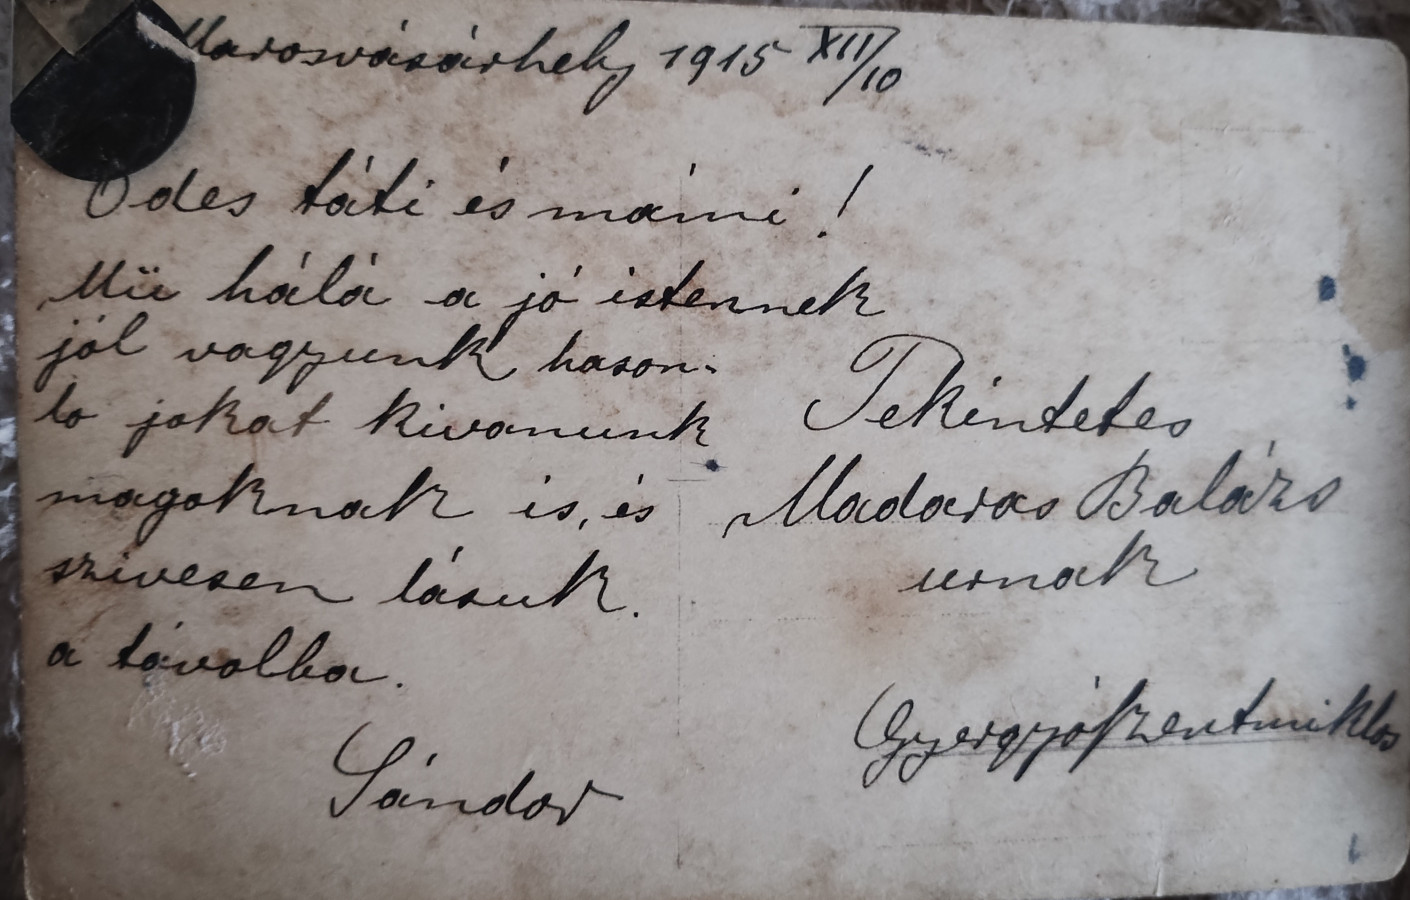 Marosvásárhely 1915 XII/10
Odes táti és mámi!
Mü hálá a jó istennek
jól vagyunk hason-
lo jokat kivanunk
magoknak is, és
szivesen lásuk.
a távolba.
Sándor
Tekintetes
Madaras Balázs
urnak
Gyergyószentmiklos